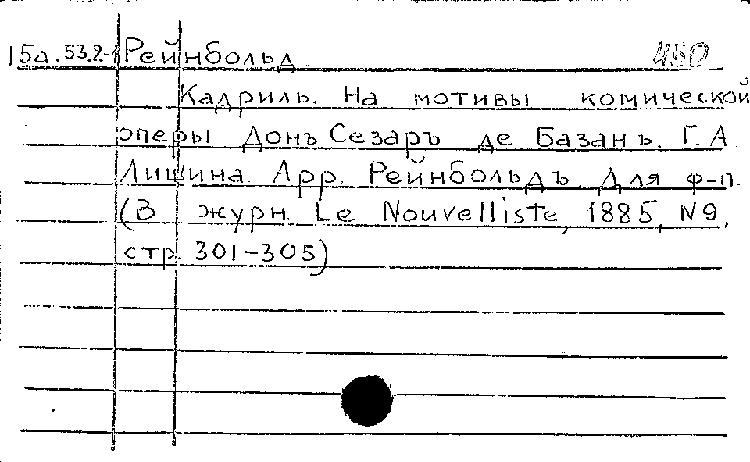 15а.53.2-1 Рейнбольд 450
Кадриль. На мотивы комической
оперы Донъ Сезаръ де Базанъ. Г.А
Лишина. Арр. Рейнбольдъ. Для ф-п.
(В журн. Le Nouvelliste, 1885, N9,
стр. 301-305)